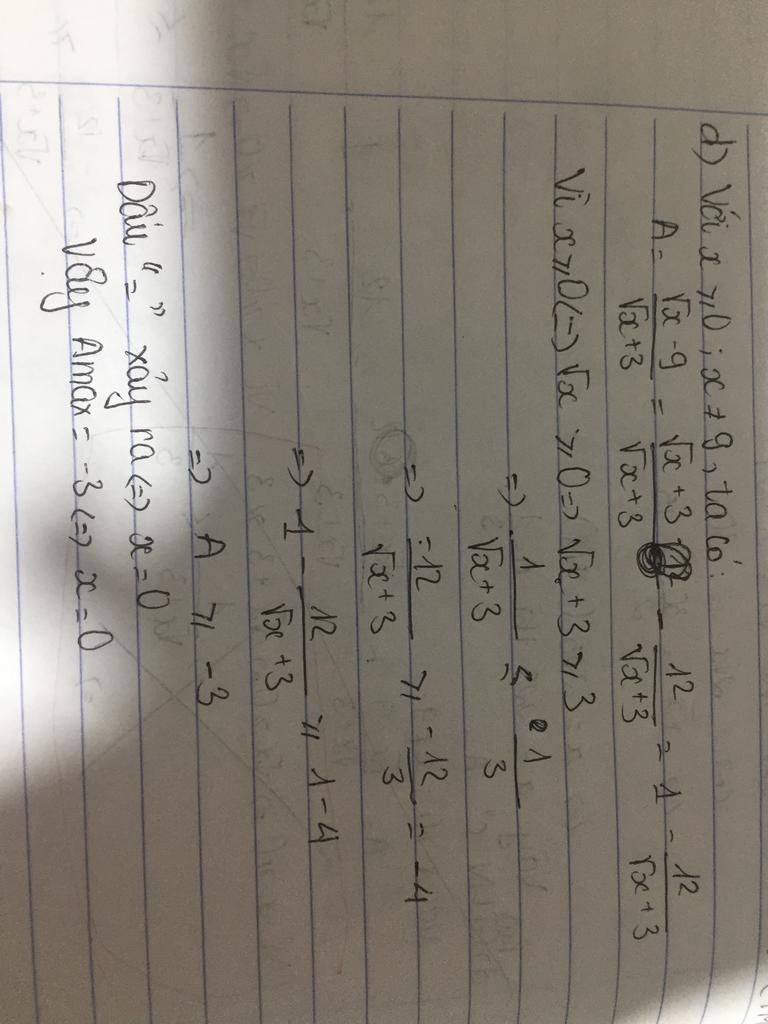 d) Với x ≥ 0 ; x ≠ 9, ta có:
A = (√x - 9)/(√x + 3) = (√x + 3)/(√x + 3) - 12/(√x + 3) = 1 - 12/(√x + 3)
Vì x ≥ 0 (=) √x ≥ 0 => √x + 3 ≥ 3
=) 1/(√x + 3) ≤ 1/3
=) -12/(√x + 3) ≥ -12/3 = -4
=) 1 - 12/(√x + 3) ≥ 1 - 4
=) A ≥ -3
Dấu "=" xảy ra (=) x = 0
Vậy Amax = -3 (=) x = 0